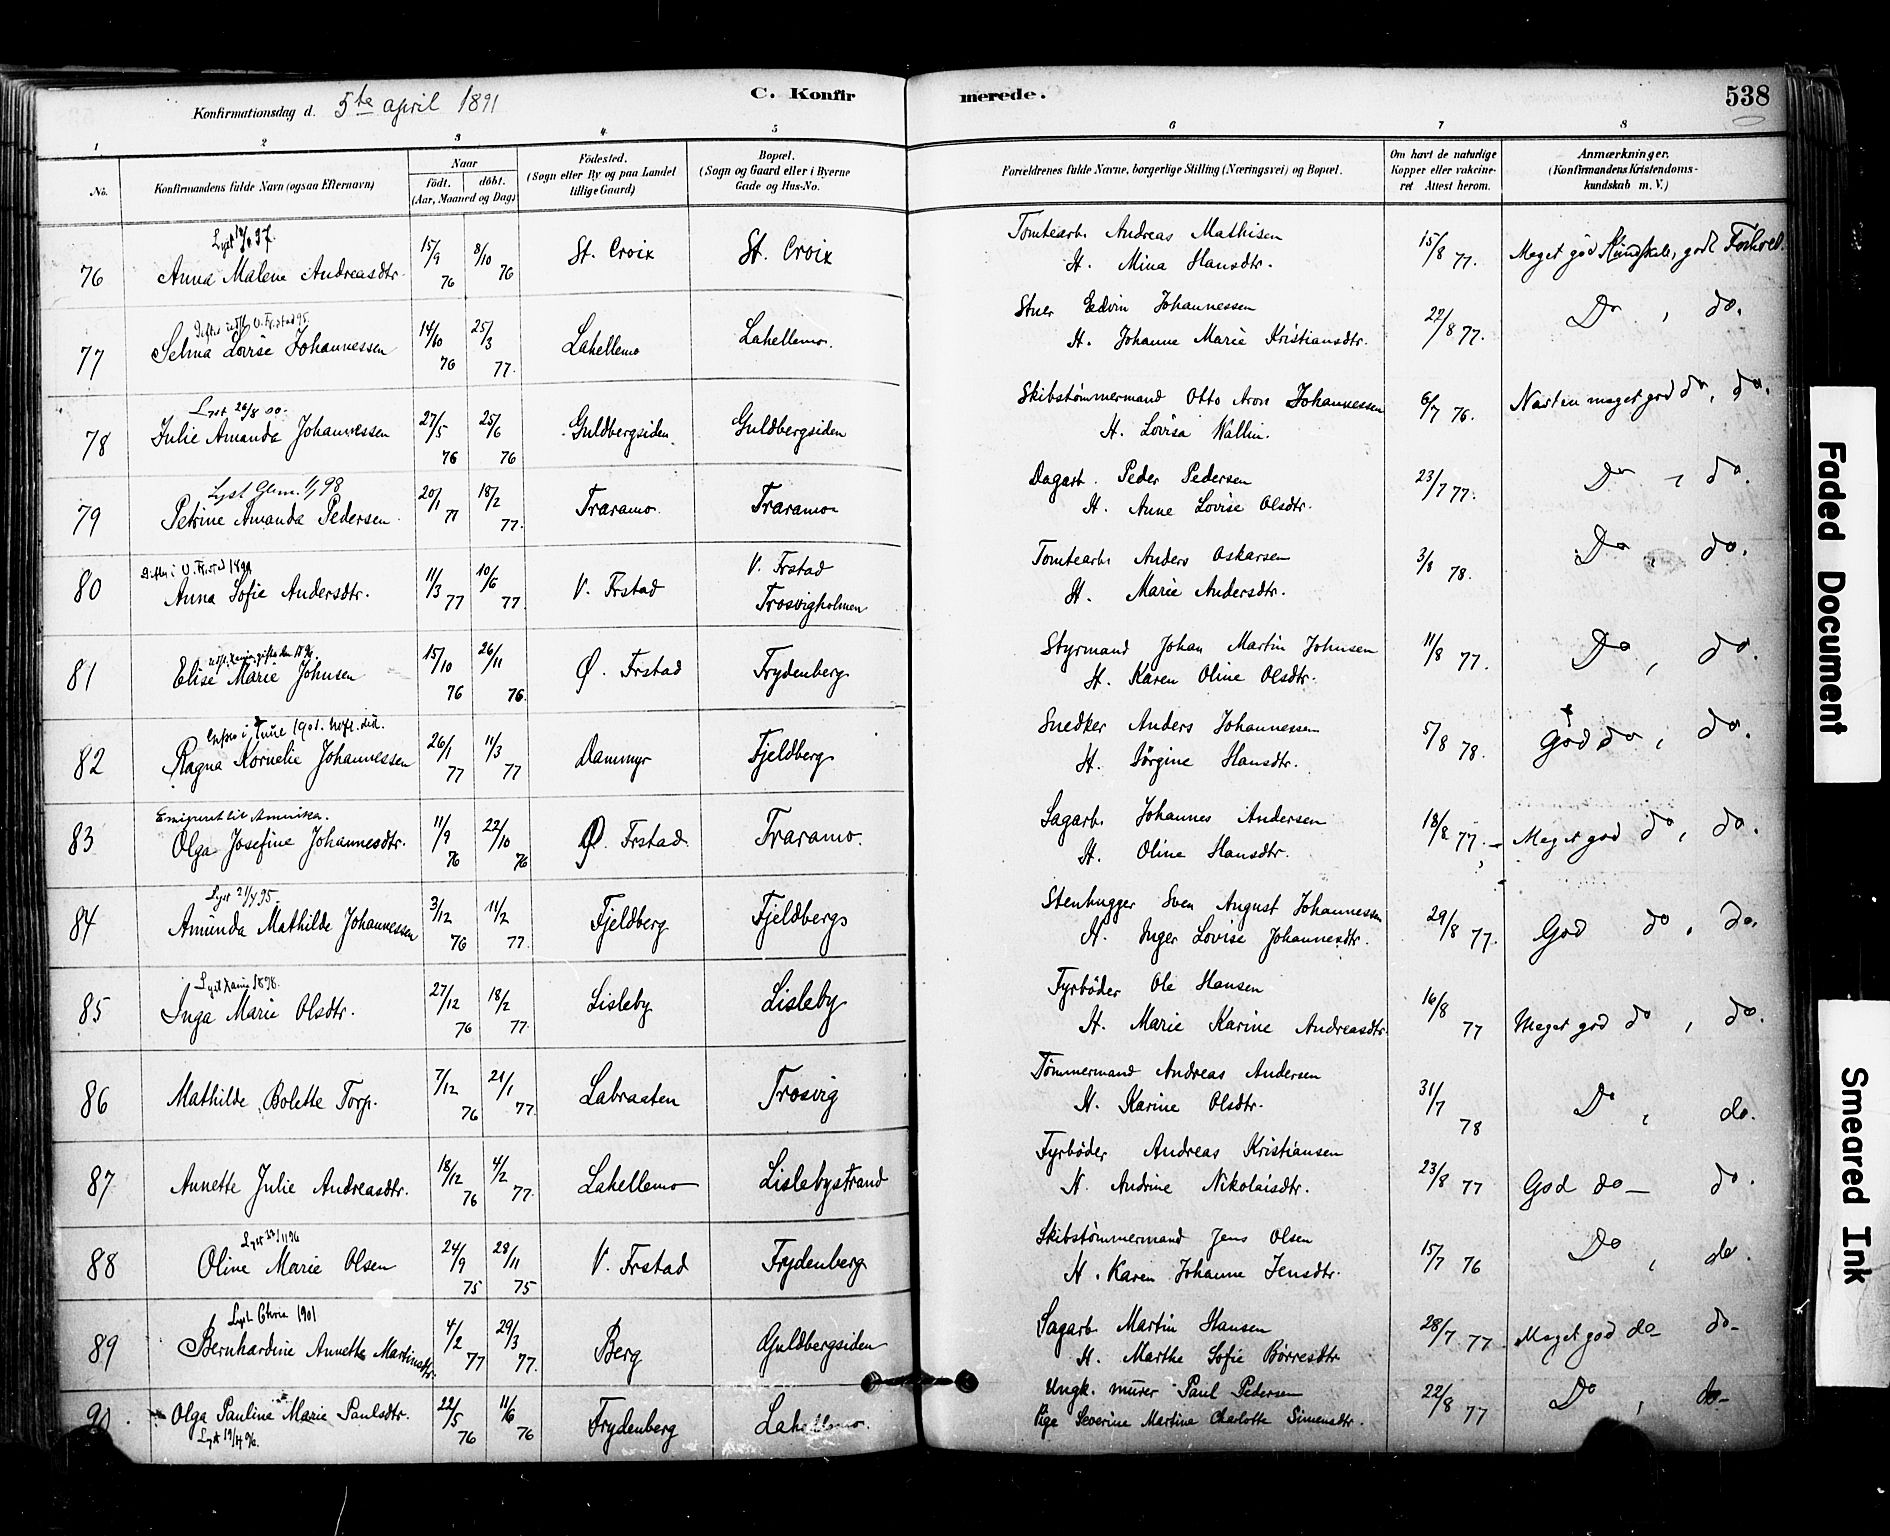 Konfirmationsdag d. 5te april 1891
C. Konfirmerede.
538
1 2 3 4 5 6 7 8
No.
Konfirmandens fulde Navn (ogsaa Efternavn)
Naar
födt. döbt.
(Aar, Maaned og Dag)
Födested.
(Sogn eller By og paa Landet
tillige Gaard)
Bopæl.
(Sogn og Gaard eller i Byerne
Gade og Hus-No.
Forældrenes fulde Navne, borgerlige Stilling (Næringsvei) og Bopæl.
Om havt de naturlige
Kopper eller vakcine-
ret Attest herom.
Anmærkninger.
(Konfirmandens Kristendoms-
kundskab m. V.)
76 Anna Malene Andreasdtr. 15/9 76 8/10 76 St. Croix St. Croix
Tomtearb. Andreas Mathisen
H. Mina Hansdtr.
15/8 77. Meget god Kundskab, godt Forhold.
77 Selma Lovise Johannessen 14/10 76 25/3 77. Lahellemo Lahellemo.
Stuer Edvin Johannessen
H. Johanne Marie Kristiansdtr.
22/8 77. Do, do.
Lyst 26/8 00.
78 Julie Amanda Johannessen 27/5 76 25/6 76 Guldbergsiden. Guldbergsiden
Skibstømmermand Otto Aron Johannessen
H. Lovisa Wallin.
6/7 76. Næsten meget god do, do.
Lyst Glem. 98
79 Petrine Amanda Pedersen 20/1 77 18/2 77. Traramo. Traramo
Dagarb. Peder Pedersen
H. Anne Lovise Olsdtr.
23/7 77. Do, do.
80 Anna Sofie Andersdtr. 11/3 77 10/6 77. V. Frstad V. Frstad
Trosvigholmen
Tomtearb. Anders Oskarsen
H. Marie Andersdtr.
3/8 78. Do, do.
81 Elise Marie Johnsen 15/10 76 26/11 76. Ø. Frstad Frydenberg
Styrmand Johan Martin Johnsen
H. Karen Oline Olsdtr.
11/8 77. Do, do.
82 Ragna Kornelie Johannessen 26/1 77 11/3 77 Dammyr Fjeldberg
Snedker Anders Johannessen
H. Jörgine Hansdtr.
5/8 78. God do, do.
Emigreret til Amerika.
83 Olga Josefine Johannesdtr. 11/9 76 22/10 76 Ø. Frstad. Traramo.
Sagarb. Johannes Andersen
H. Oline Hansdtr.
18/8 77. Meget god do, do.
Lyst 21/4 95.
84 Amanda Mathilde Johannessen 3/12 76 11/2 77. Fjeldberg Fjeldberg
Stenhugger Sven August Johannessen
H. Inger Lovise Johannesdtr.
29/8 77. God do, do.
85 Inga Marie Olsdtr. 27/12 76 18/2 77. Lisleby Lisleby
Fyrböder Ole Hansen
H. Marie Karine Andreasdtr.
16/8 77 Meget god do, do.
86 Mathilde Bolette Torp. 7/12 76 21/1 77. Labraaten Trosvig
Tømmermand Andreas Andersen
H. Karine Olsdtr.
31/7 78 Do, do.
87 Annette Julie Andreasdtr. 18/12 76 4/2 77. Lahellemo Lislebystrand
Fyrböder Andreas Kristiansen
H. Andrine Nikolaisdtr.
23/8 77 God do do.
88 Oline Marie Olsen 24/9 75 28/11 75 V. Frstad Frydenberg
Skibstømmermand Jens Olsen
H. Karen Johanne Jensdtr.
15/7 76 Do, do.
Lyst Chria 1901
89 Bernhardine Annette Martinsdtr. 4/2 77 29/3 77. Berg Guldbergsiden
Sagarb. Martin Hansen
H. Marthe Sofie Börresdtr.
28/7 77. Meget god do do
90. Olga Pauline Marie Paulsdtr. 22/5 76 11/6 76 Frydenberg Lahellemo.
Lyst 19/4 96.
Ungk. murer Paul Pedersen
Pige Severine Martine Charlotte Simensdtr.
22/8 77 Do, do
Faded Document
Smeared Ink